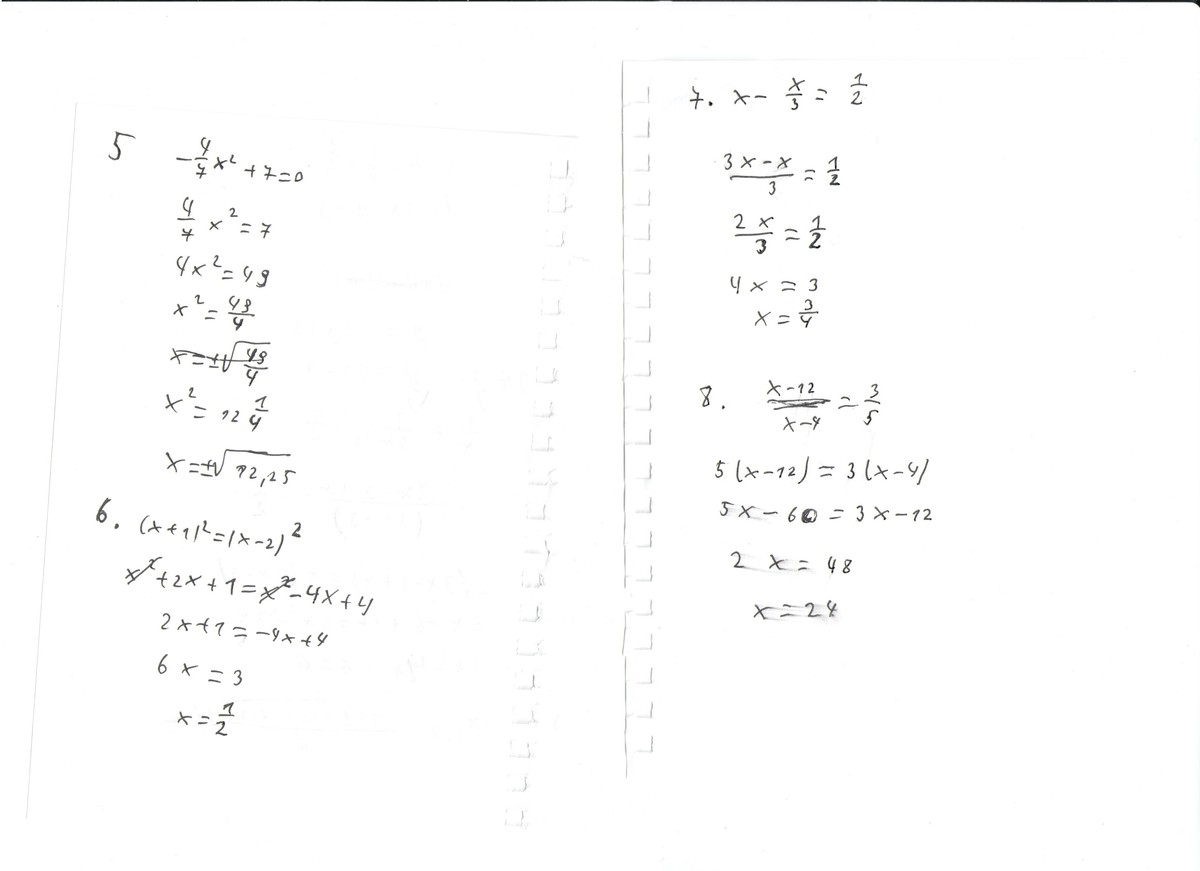 5 -4/7 x² + 7 = 0
4/7 x² = 7
4x² = 49
x² = 49/4
x = ±√(49/4)
x² = 12 1/4
x = ±√12,25
6. (x+1)² = (x-2)²
x² + 2x + 1 = x² - 4x + 4
2x + 1 = -4x + 4
6x = 3
x = 1/2
7. x - x/3 = 1/2
(3x - x)/3 = 1/2
2x/3 = 1/2
4x = 3
x = 3/4
8. (x-12)/(x-4) = 3/5
5(x-12) = 3(x-4)
5x - 60 = 3x - 12
2x = 48
x = 24